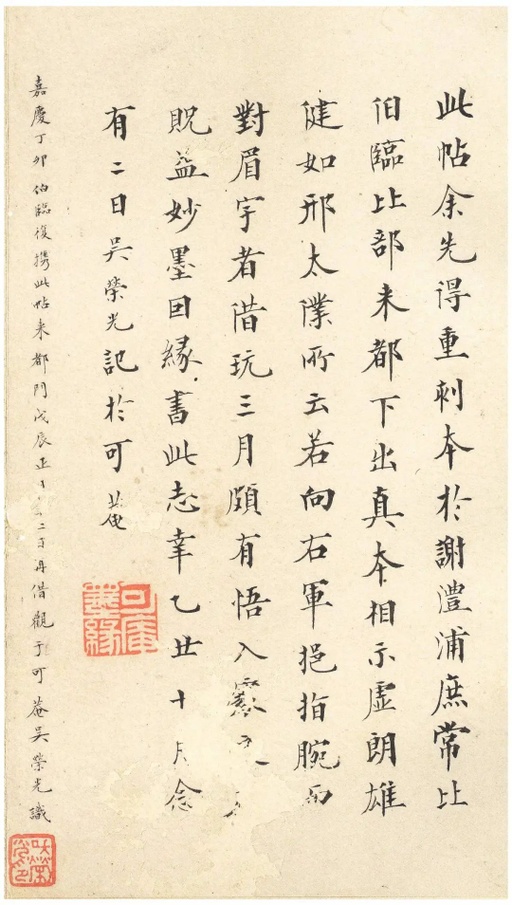 此帖余先得重刺本於謝澧浦庶常比
伯臨比部来都下出真本相示虛朗雄
健如邢太僕所云若向右軍挹指腕而
對眉宇者借玩三月頗有悟入
貺益妙墨因緣書此志幸乙丑十月念
有二日吳榮光記於可菴
可庵墨緣
嘉慶丁卯伯臨復携此帖来都門戊辰正二日再借觀于可菴吳榮光識
吳榮光印